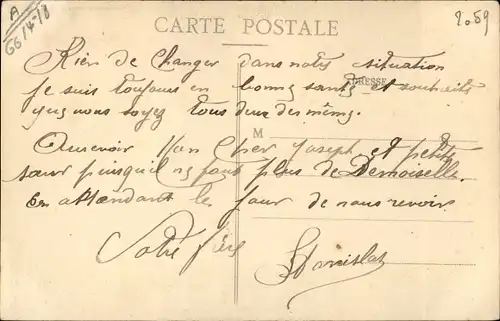 A
GG 14-18
2059
CARTE POSTALE
ADRESSE
M
Rien de Changer dans notes situation
Je suis toujours en bonne santé et souhaits
que vous soyez tous deux des mêmes.
Aurevoir Mon Cher Joseph et petite
sœur puisqu'il ny faut plus de Demoiselle.
En attendant le jour de nous revoir
Votre frère
Stanislas